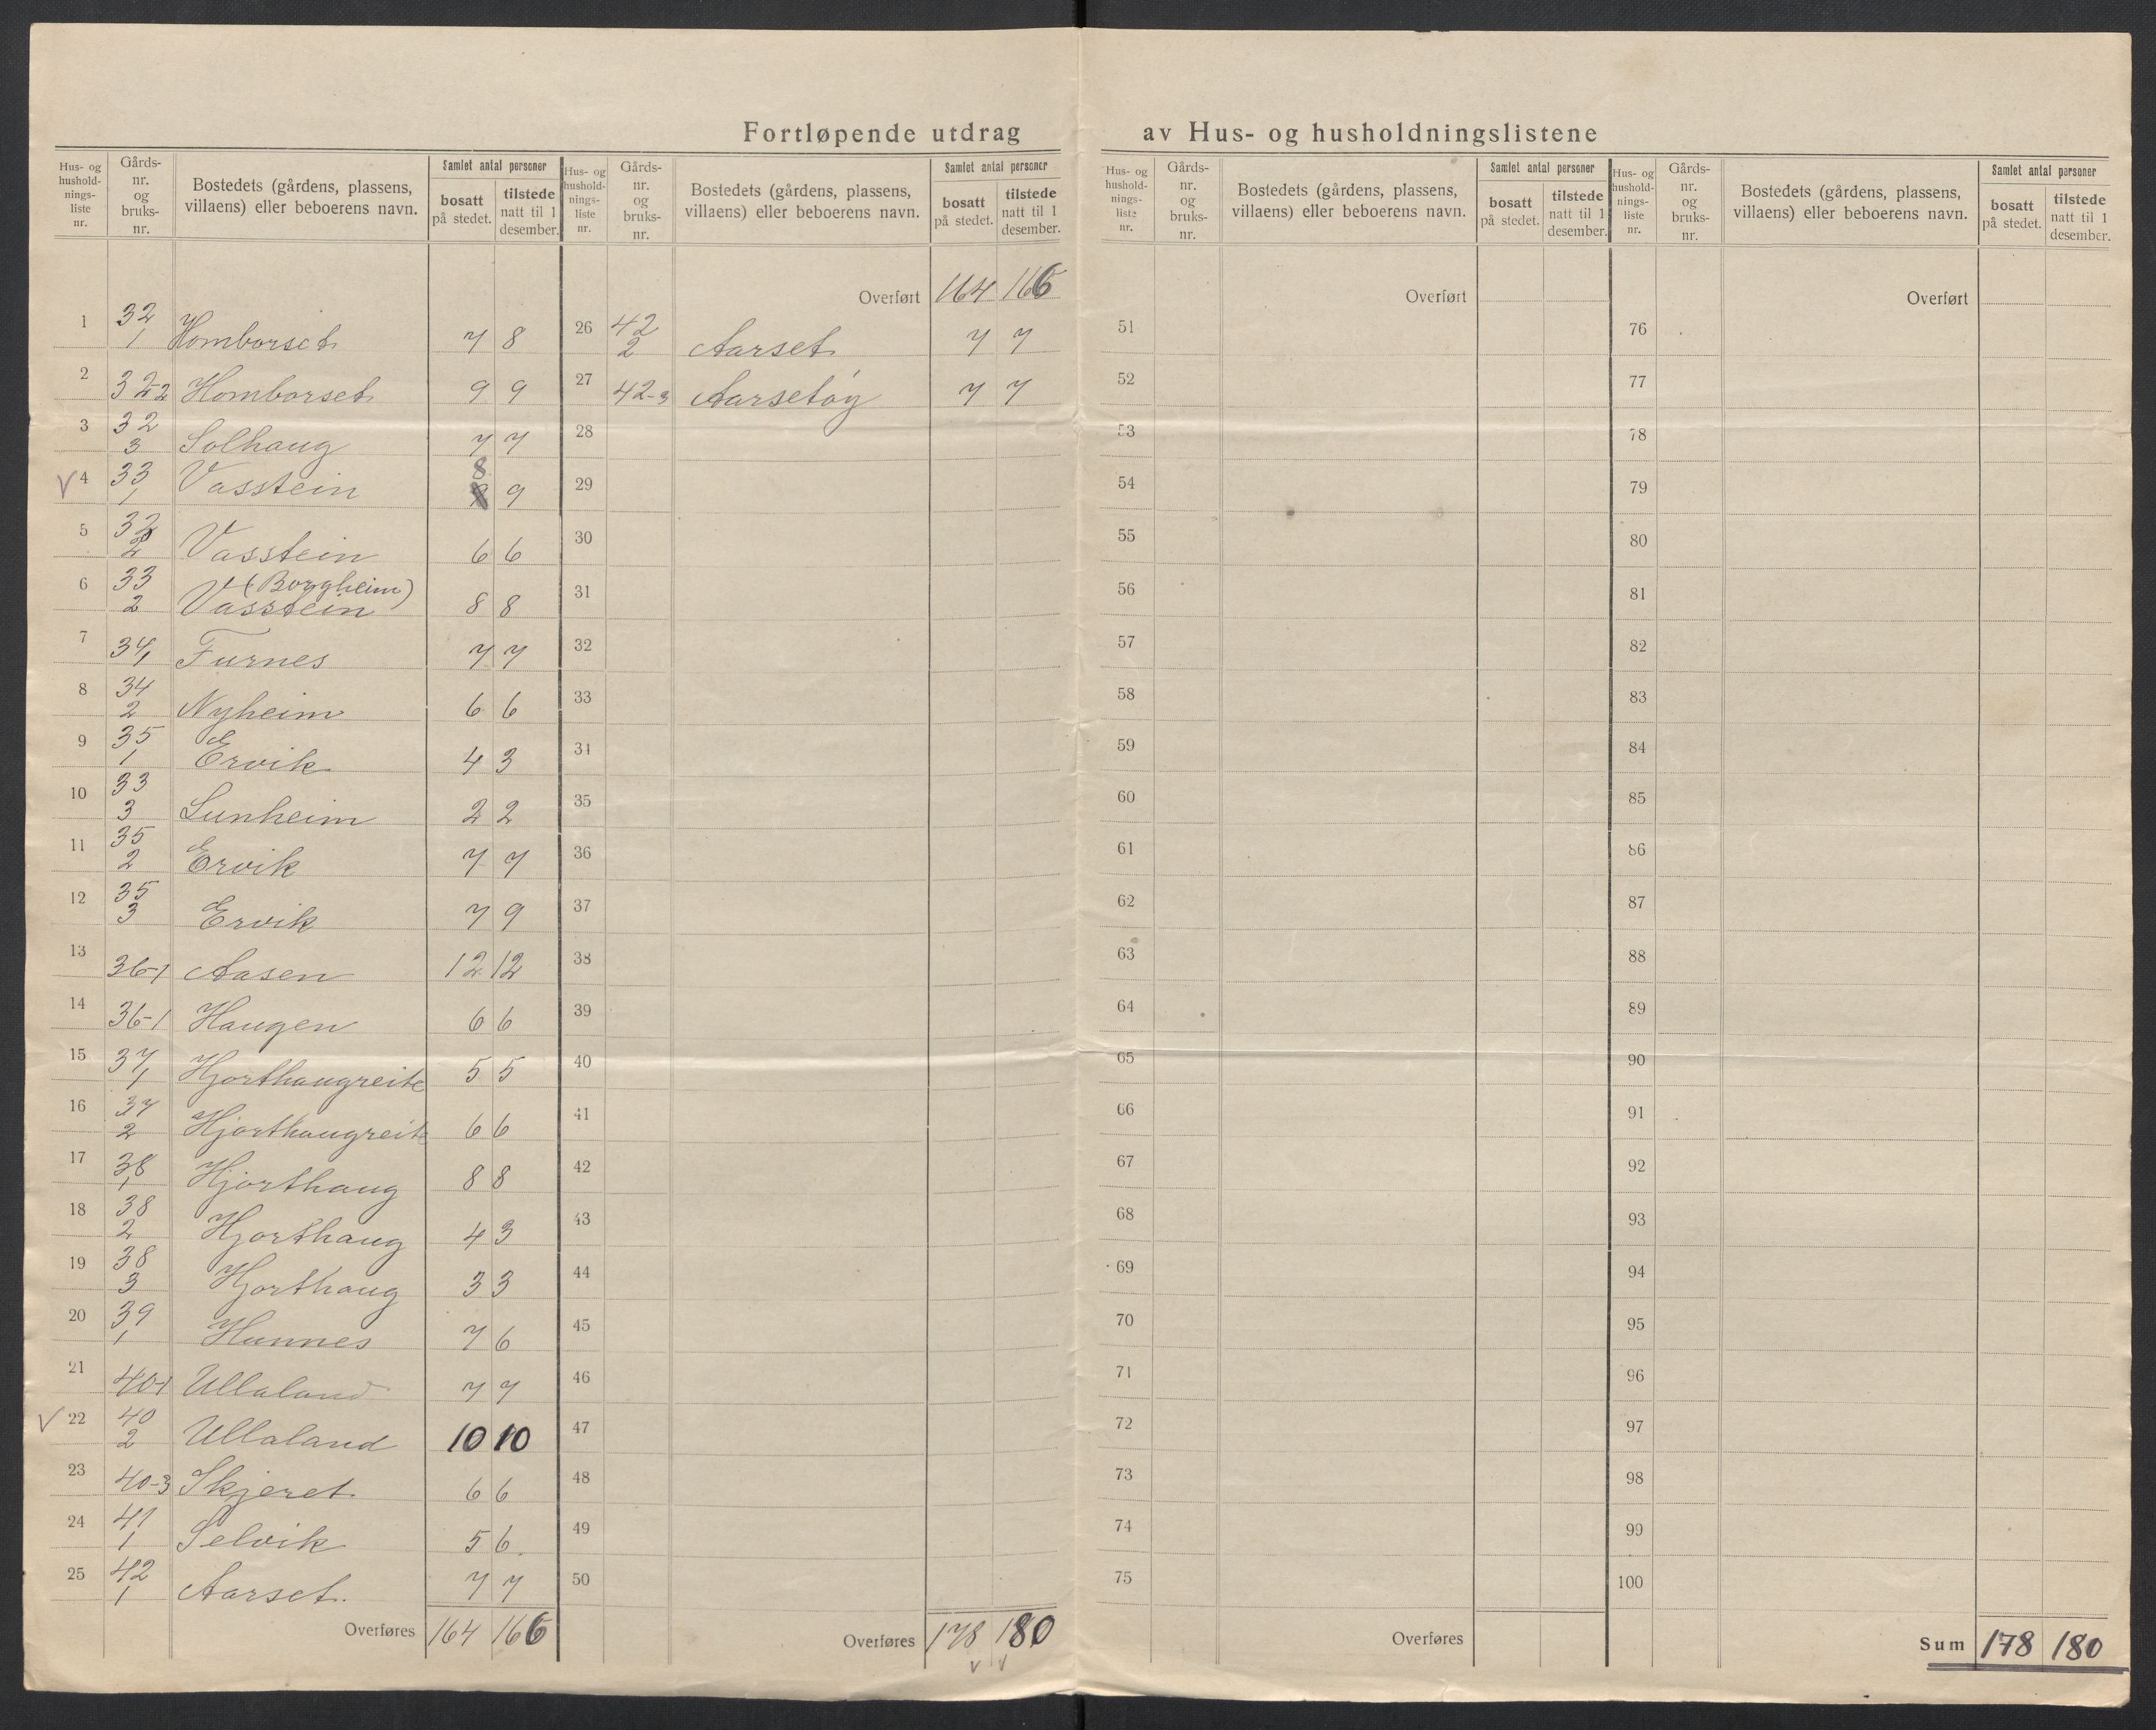 Fortløpende utdrag av Hus- og husholdningslistene
Hus- og husholdningsliste nr. | Gårdsnr. og bruksnr. | Bostedets (gårdens, plassens, villaens) eller beboerens navn. | Samlet antal personer | bosatt på stedet. | tilstede natt til 1 desember.
1 32/1 Homborset 7 8
2 32-2 Homborset 9 9
3 32/3 Solhaug 7 7
V 4 33/1 Vasstein 8 9
5 33/2 Vasstein 6 6
6 33/2 Vasstein (Borgheim) 8 8
7 34/1 Furnes 7 7
8 34/2 Nyheim 6 6
9 35/1 Ervik 4 3
10 33/3 Sunheim 2 2
11 35/2 Ervik 7 7
12 35/3 Ervik 7 9
13 36-1 Aasen 12 12
14 36-1 Haugen 6 6
15 37/1 Hjorthaugreite 5 5
16 37/2 Hjorthaugreite 6 6
17 38/1 Hjorthaug 8 8
18 38/2 Hjorthaug 4 3
19 38/3 Hjorthaug 3 3
20 39/1 Hunnes 7 6
21 40-1 Ullaland 7 7
V 22 40/2 Ullaland 10 10
23 40-3 Skjeret 6 6
24 41/1 Selvik 5 6
25 42/1 Aarset 7 7
Overføres 164 166
Hus- og husholdningsliste nr. | Gårdsnr. og bruksnr. | Bostedets (gårdens, plassens, villaens) eller beboerens navn. | Samlet antal personer | bosatt på stedet. | tilstede natt til 1 desember.
Overført 164 166
26 42/2 Aarset 7 7
27 42-3 Aarsetøy 7 7
28
29
30
31
32
33
34
35
36
37
38
39
40
41
42
43
44
45
46
47
48
49
50
Overføres 178 180
V V
Hus- og husholdningsliste nr. | Gårdsnr. og bruksnr. | Bostedets (gårdens, plassens, villaens) eller beboerens navn. | Samlet antal personer | bosatt på stedet. | tilstede natt til 1 desember.
Overført
51
52
53
54
55
56
57
58
59
60
61
62
63
64
65
66
67
68
69
70
71
72
73
74
75
Overføres
Hus- og husholdningsliste nr. | Gårdsnr. og bruksnr. | Bostedets (gårdens, plassens, villaens) eller beboerens navn. | Samlet antal personer | bosatt på stedet. | tilstede natt til 1 desember.
Overført
76
77
78
79
80
81
82
83
84
85
86
87
88
89
90
91
92
93
94
95
96
97
98
99
100
Sum 178 180